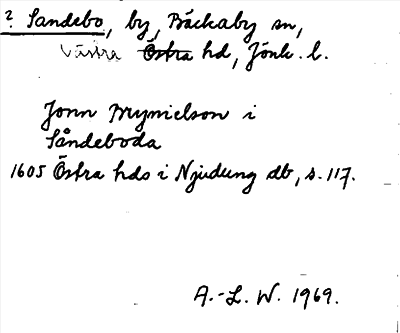 ? Sandebo, by, Bäckaby sn,
Västra Östra hd, Jönk. l.
Jonn Brynielson i
Såndeboda
1605 Östra hds i Njudung db, s. 117.
A.-L. W. 1969.